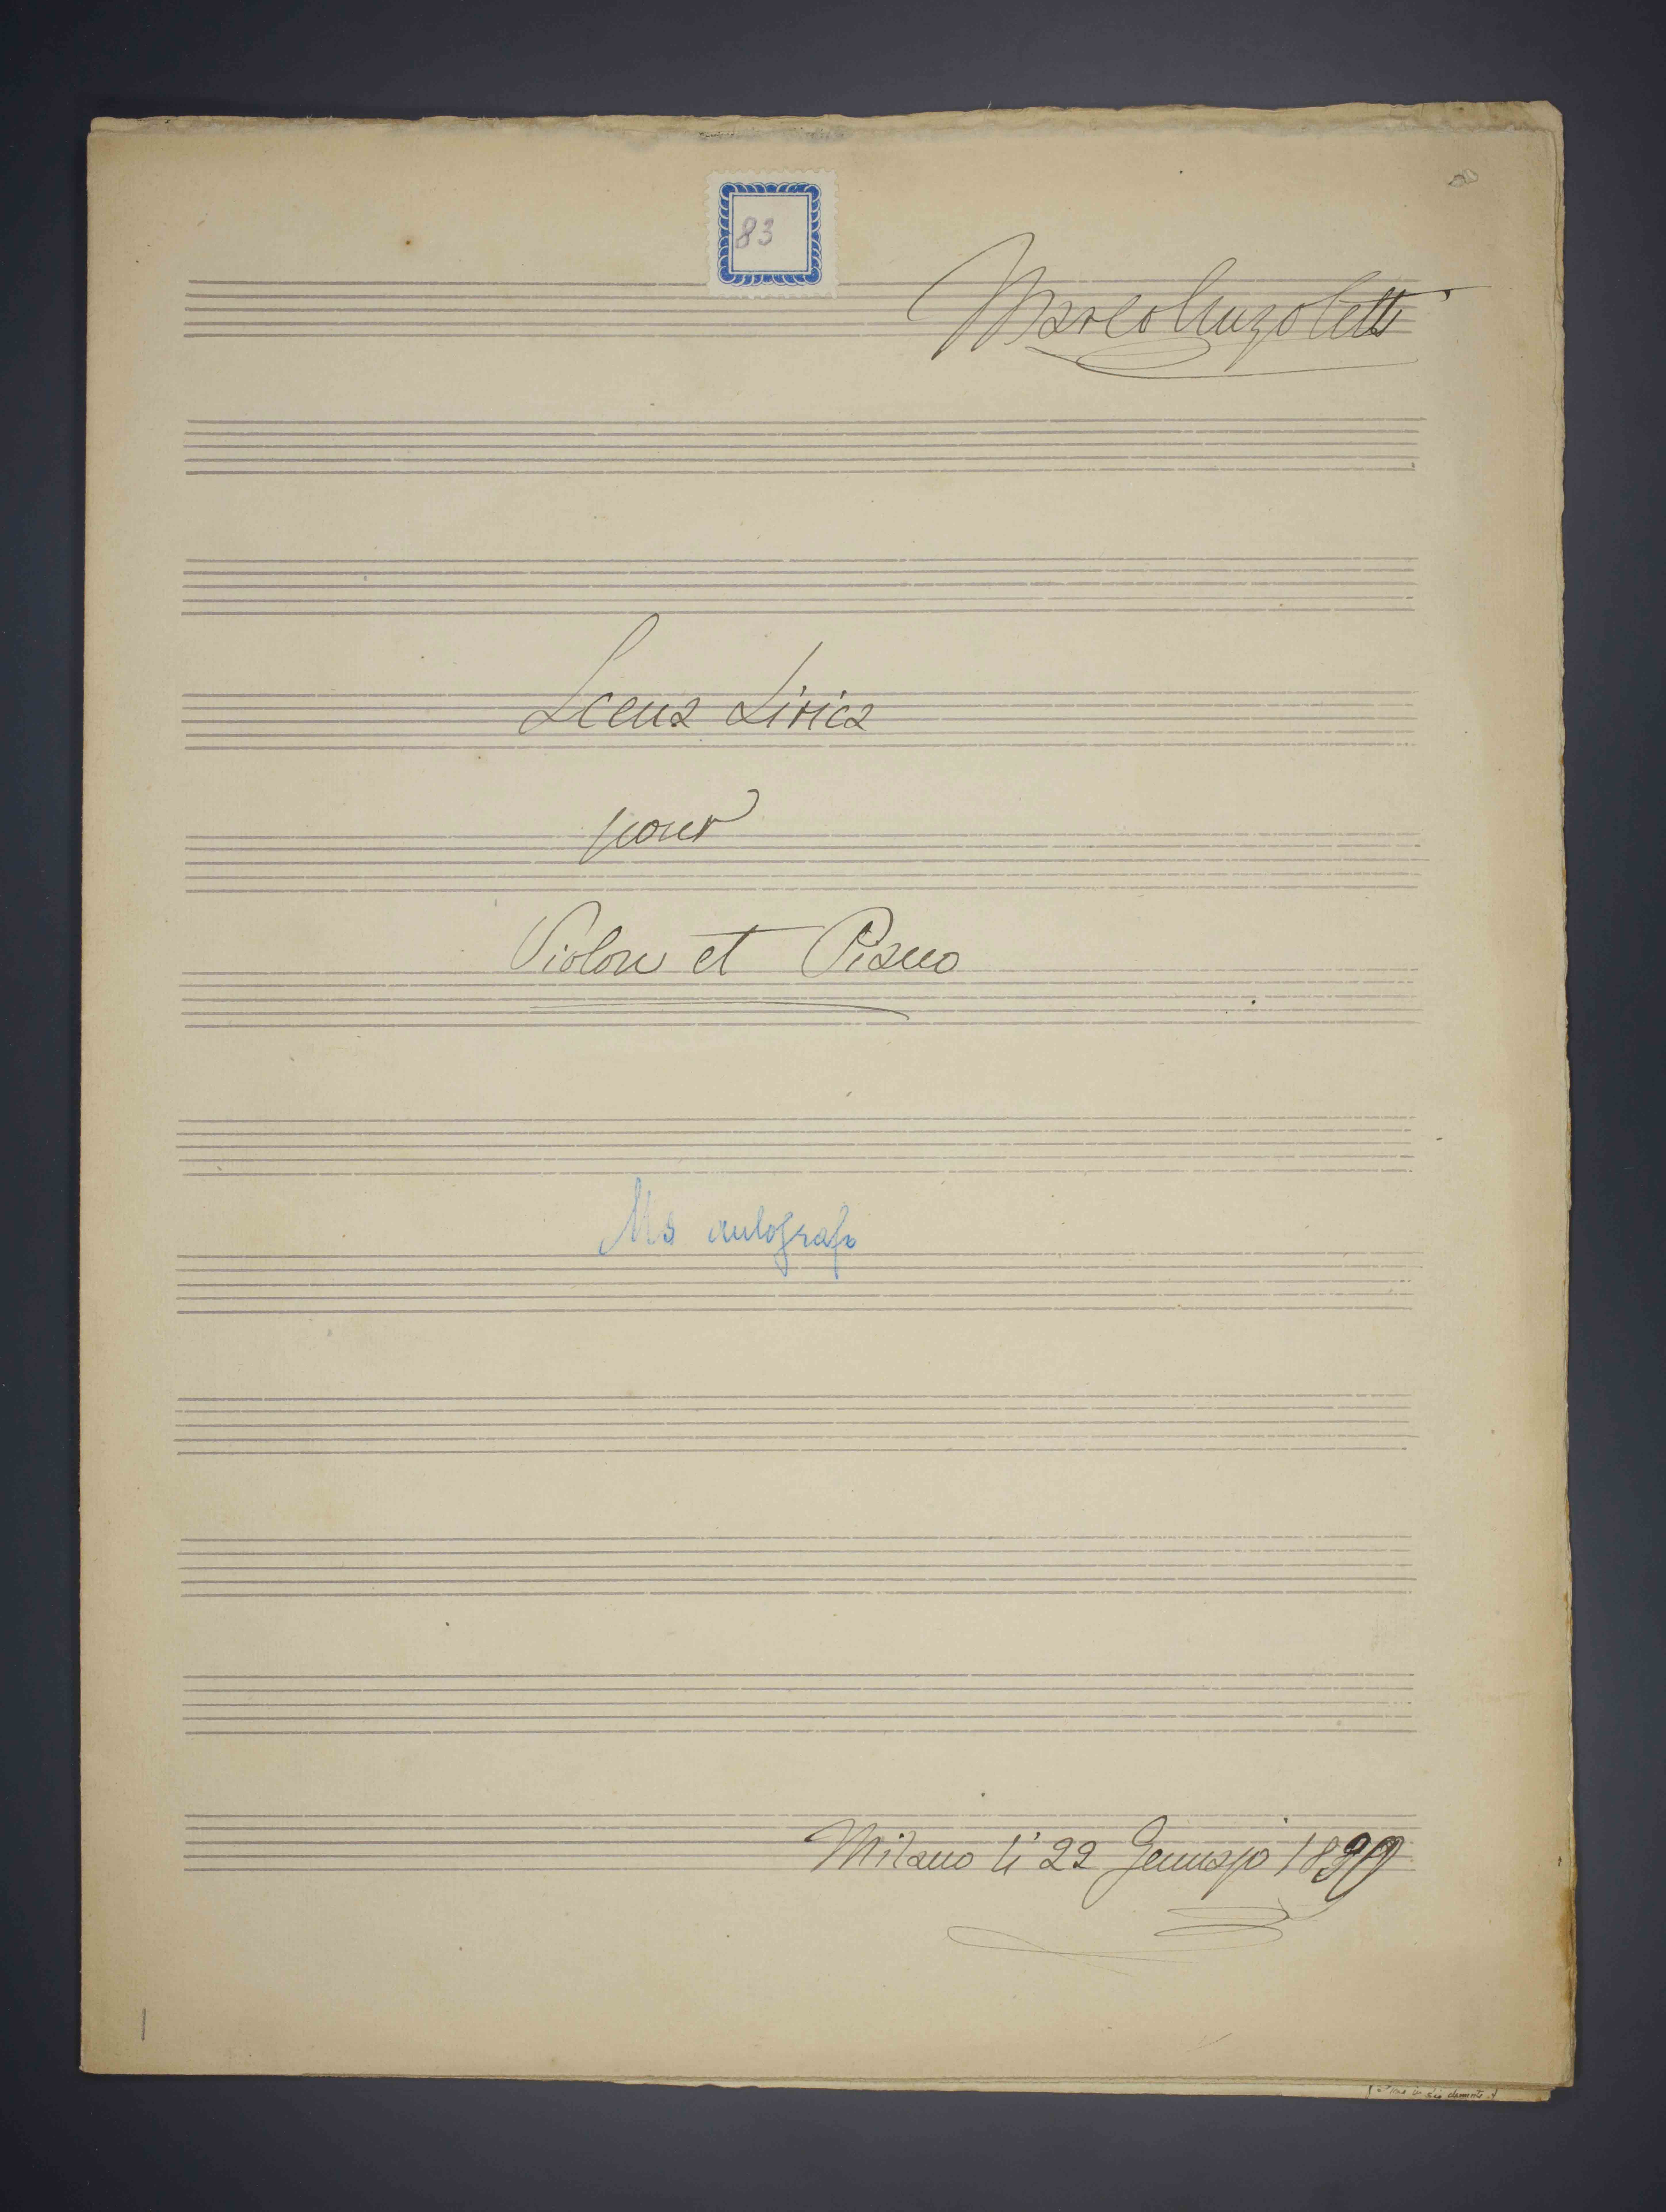 83
Marco Anzoletti
Scena Lirica
pour
Violon et Piano
Ms autografo
Milano li 22 Gennajo 1890